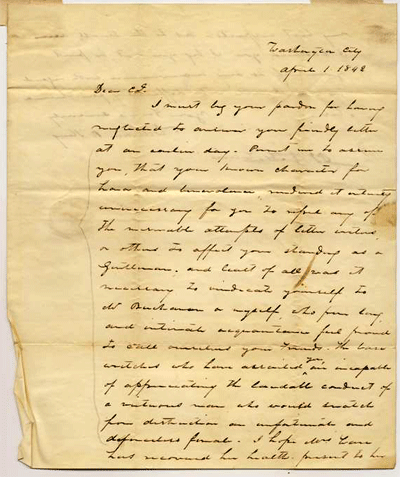 Washington City
April 1 1842
Dear Col.
I must beg your pardon for having
neglected to answer your friendly letter
at an earlier day. Permit me to assure
you, that your known character for
honor and benevolence, rendered it entirely
unnecessary for you to repel any of
the miserable attempts of letter writers
or others to affect your standing as a
Gentleman. and least of all was it
necessary to vindicate yourself to
Mr Buchanan or myself, who from long
and intimate acquaintance feel proud
to call ourselves your friends. the base
wretches who have assailed you are incapable
of appreciating the laudable conduct of
a virtuous man who would snatch
from destruction an unfortunate and
defenceless female. I hope Mrs
has recovered her health, present to her